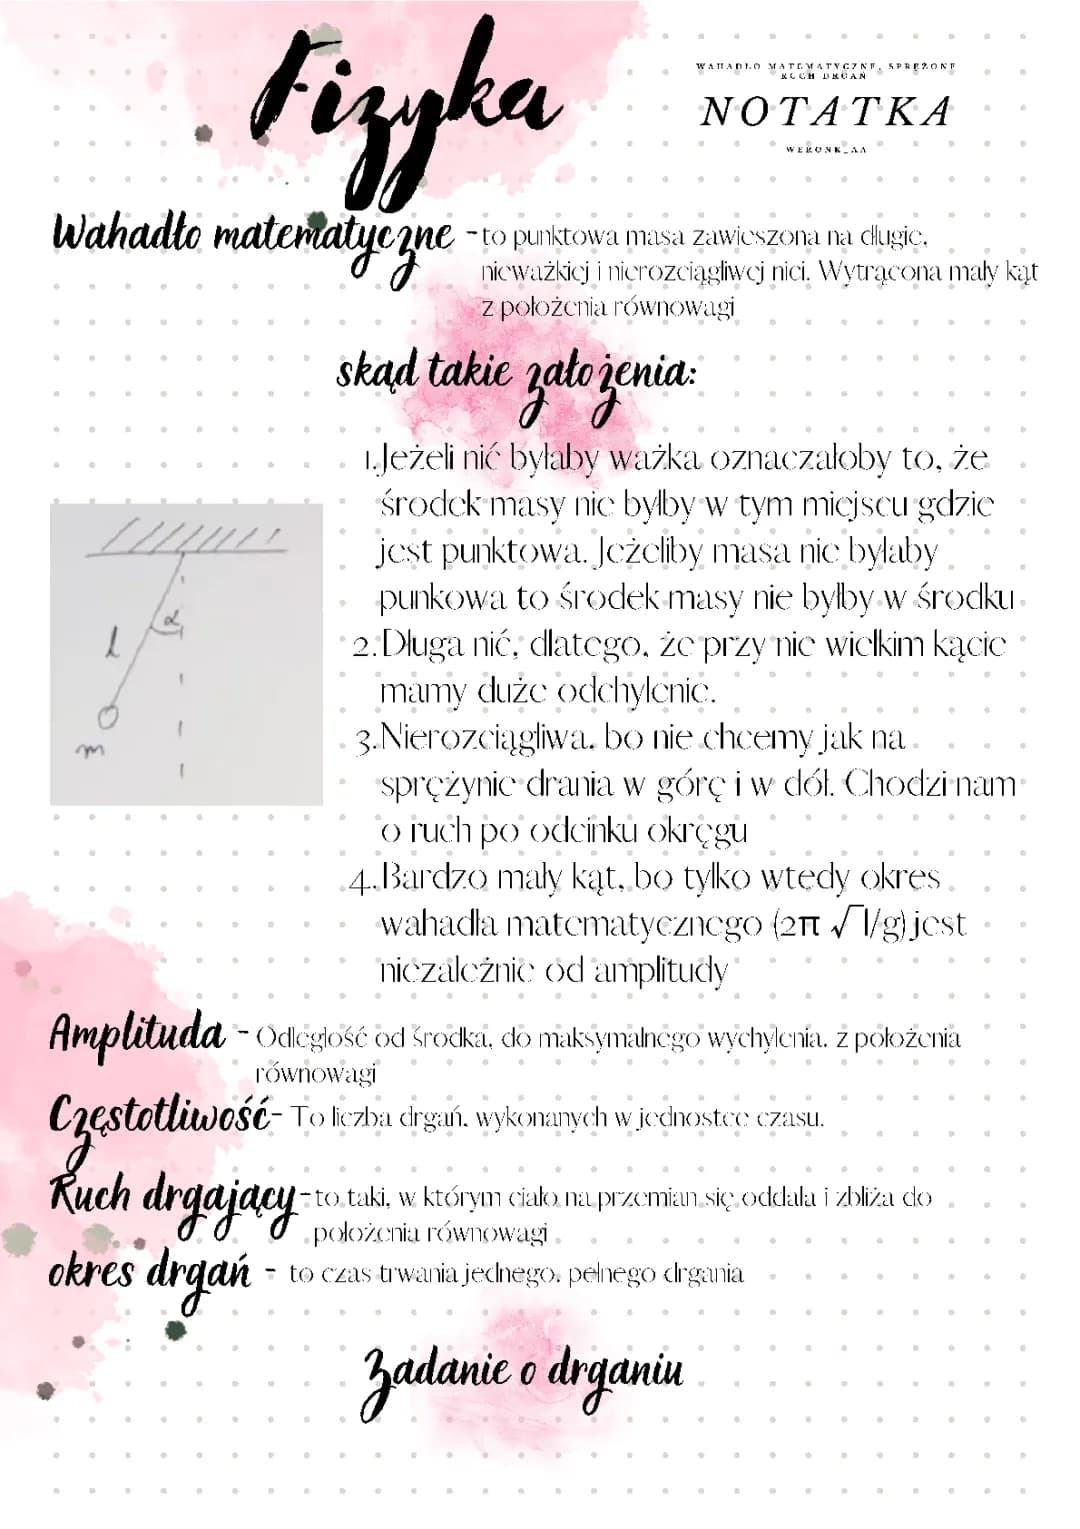 Fizyka
WAHADŁO MATEMATYCZNE, SPRĘŻONE
RUCH DRGAŃ
NOTATKA
WERONK_AA
Wahadło matematyczne - to punktowa masa zawieszona na długie,
nieważkiej i nierozciągliwej nici. Wytrącona mały kąt
z położenia równowagi
skąd takie założenia:
1. Jeżeli nić byłaby ważka oznaczałoby to, że
środek masy nie byłby w tym miejscu gdzie
jest punktowa. Jeżeliby masa nie byłaby
punkowa to środek masy nie byłby w środku
2. Długa nić, dlatego, że przy nie wielkim kącie
mamy duże odchylenie.
3. Nierozciągliwa, bo nie chcemy jak na
sprężynie drania w górę i w dół. Chodzi nam
o ruch po odcinku okręgu
4. Bardzo mały kąt, bo tylko wtedy okres
wahadła matematycznego (2π √l/g) jest
niezależnie od amplitudy
α
l
m
Amplituda - Odległość od środka, do maksymalnego wychylenia, z położenia
równowagi
Częstotliwość - To liczba drgań, wykonanych w jednostce czasu.
Ruch drgający - to taki, w którym ciało na przemian się oddala i zbliża do
położenia równowagi
okres drgań - to czas trwania jednego, pełnego drgania
Zadanie o drganiu